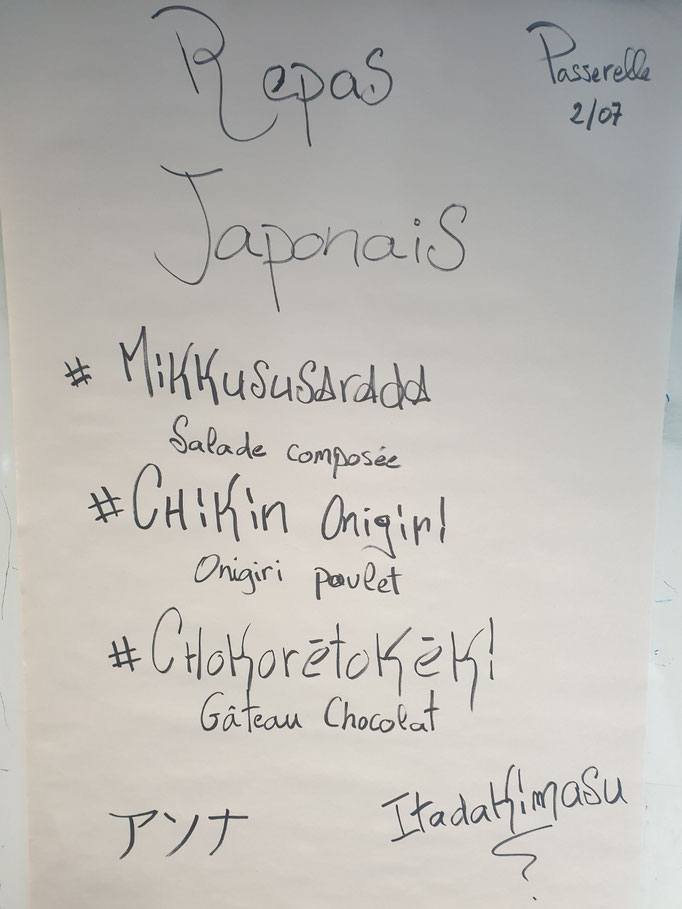 Repas
Passerelle
2/07
Japonais
# Mikkususaradda
Salade composée
# Chikin Onigiri
Onigiri poulet
# Chokorētokēki
Gâteau Chocolat
アソナ
Itadakimasu